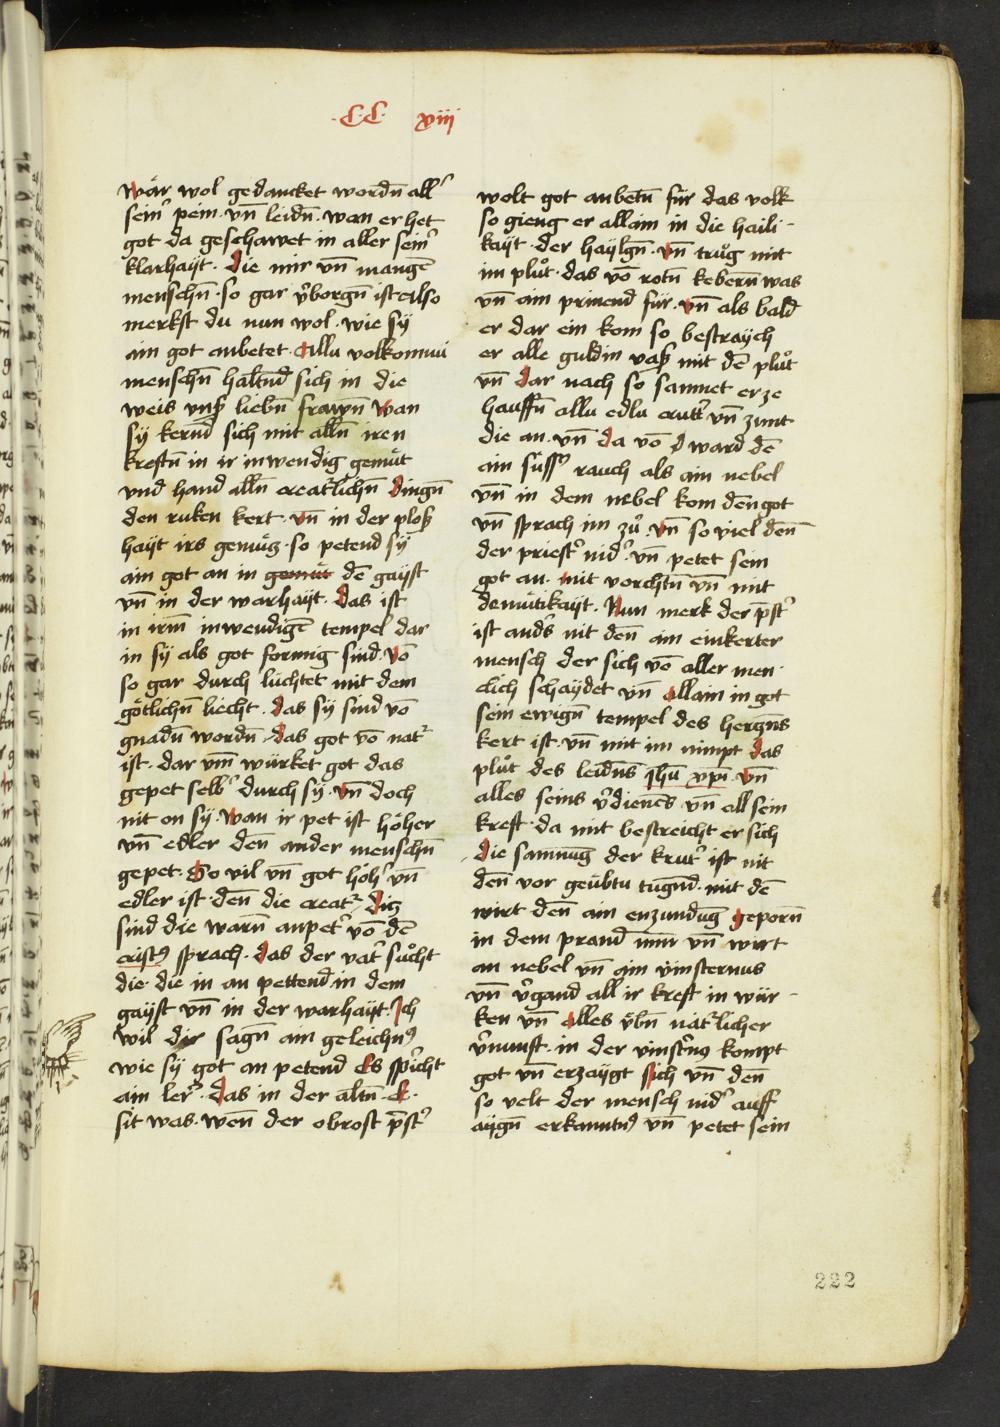 ·C·C· xviij
wär wol gedancket wordn̄ all᾿
sein᾿ pein · vn̄ leidn̄ · wan er het
got da geschawet in aller sein᾿
klarhayt · Die mir vn̄ mangē
menschn̄ · so gar v᾿borgn̄ ist also
merkst du nun wol · wie sÿ
ain got anbetet · Allu volkomni
menschn̄ haltnd sich in die
weis vnsß liebn̄ frawn̄ Wan
sÿ kernd sich mit alln̄ iren
kreftn̄ in ir inwendig gemüt
vnd hand alln̄ creatᵉlichn̄ Dingn̄
den ruken kert · Vn̄ in der ploß
hayt irs gemütz · so petend sÿ
ain got an in gemüt dē gaÿst
vn̄ in der warhaÿt · Das ist
in irm̄ inwendigē tempel dar
in sÿ als got formig sind · Vō
so gar durch lüchtet mit dem
götlichn̄ liecht · das sÿ sind vō
gnadn̄ wordn̄ · das got vō nat᾿
ist · dar vm̄ würket got das
gepet selb᾿ durch sÿ · Vn̄ doch
nit on sÿ · Wan ir pet ist höher
vn̄ edler den̄ ander menschn̄
gepet · So vil vn̄ got höh᾿ vn̄
edler ist · den̄ die creat᾿ · Diz
sind die warn̄ anpet᾿ vō dē
cristꝰ sprach · Das der vat᾿ sücht
die · die in an pettend in dem
gaÿst vn̄ in der warhaÿt · Ich
wil dir sagn̄ ain geleichnꝰ
wie sÿ got an petend Es sp᾿icht
ain ler᾿ · Das in der altn̄ · E ·
sit was · wen̄ der obrost p̄st᾿
wolt got anbetn̄ für das volk
so gieng er allain in die haili-
kaÿt · der haÿlgn̄ · Vn̄ trüg mit
im plůt · das vō rotn̄ kebern̄ was
vn̄ ain prinend für · Vn̄ als bald
er dar ein kom so bestraÿch
er alle guldin vaß mit dē plůt
vn̄ Dar nach so samnet er ze
hauffn̄ allu edlu crut᾿ vn̄ zunt
die an · vn̄ da vō D ward dē
ain süss᾿ rauch als ain nebel
vn̄ in dem nebel kom den̄ got
vn̄ sprach im zů · Vn̄ so viel den̄
der priest᾿ nid᾿ · vn̄ petet sein
got an · mit vorchtn̄ vn̄ mit
demütikaÿt · Nun merk der p̄st᾿
ist and᾿s nit den̄ ain einkerter
mensch der sich vō aller men-
clich schaÿdet vn̄ allain in got
sein ewign̄ tempel des hergn̄s
kert ist · vn̄ mit im nimpt Das
plůt des leidn̄s jhū xp̄i · Vn̄
alles seins v᾿dienēs vn̄ all sein
kreft · da mit bestreicht er sich
Die samnūg der krut᾿ ist nit
den̄ vor geübtu tugnd · mit dē
wirt den̄ ain enzundūg geporn̄
in dem prand vn̄ wirt
an nebel vn̄ ain vinsternus
vn̄ v᾿gand all ir kreft in wür-
ken vn̄ Alles übn̄ nat᾿licher
v᾿nunft · in der vinst᾿nꝰ kompt
got vn̄ erzaÿgt sich vn̄ den̄
so velt der mensch nid᾿ auff
aÿgn̄ erkantnꝰ vn̄ petet sein
222